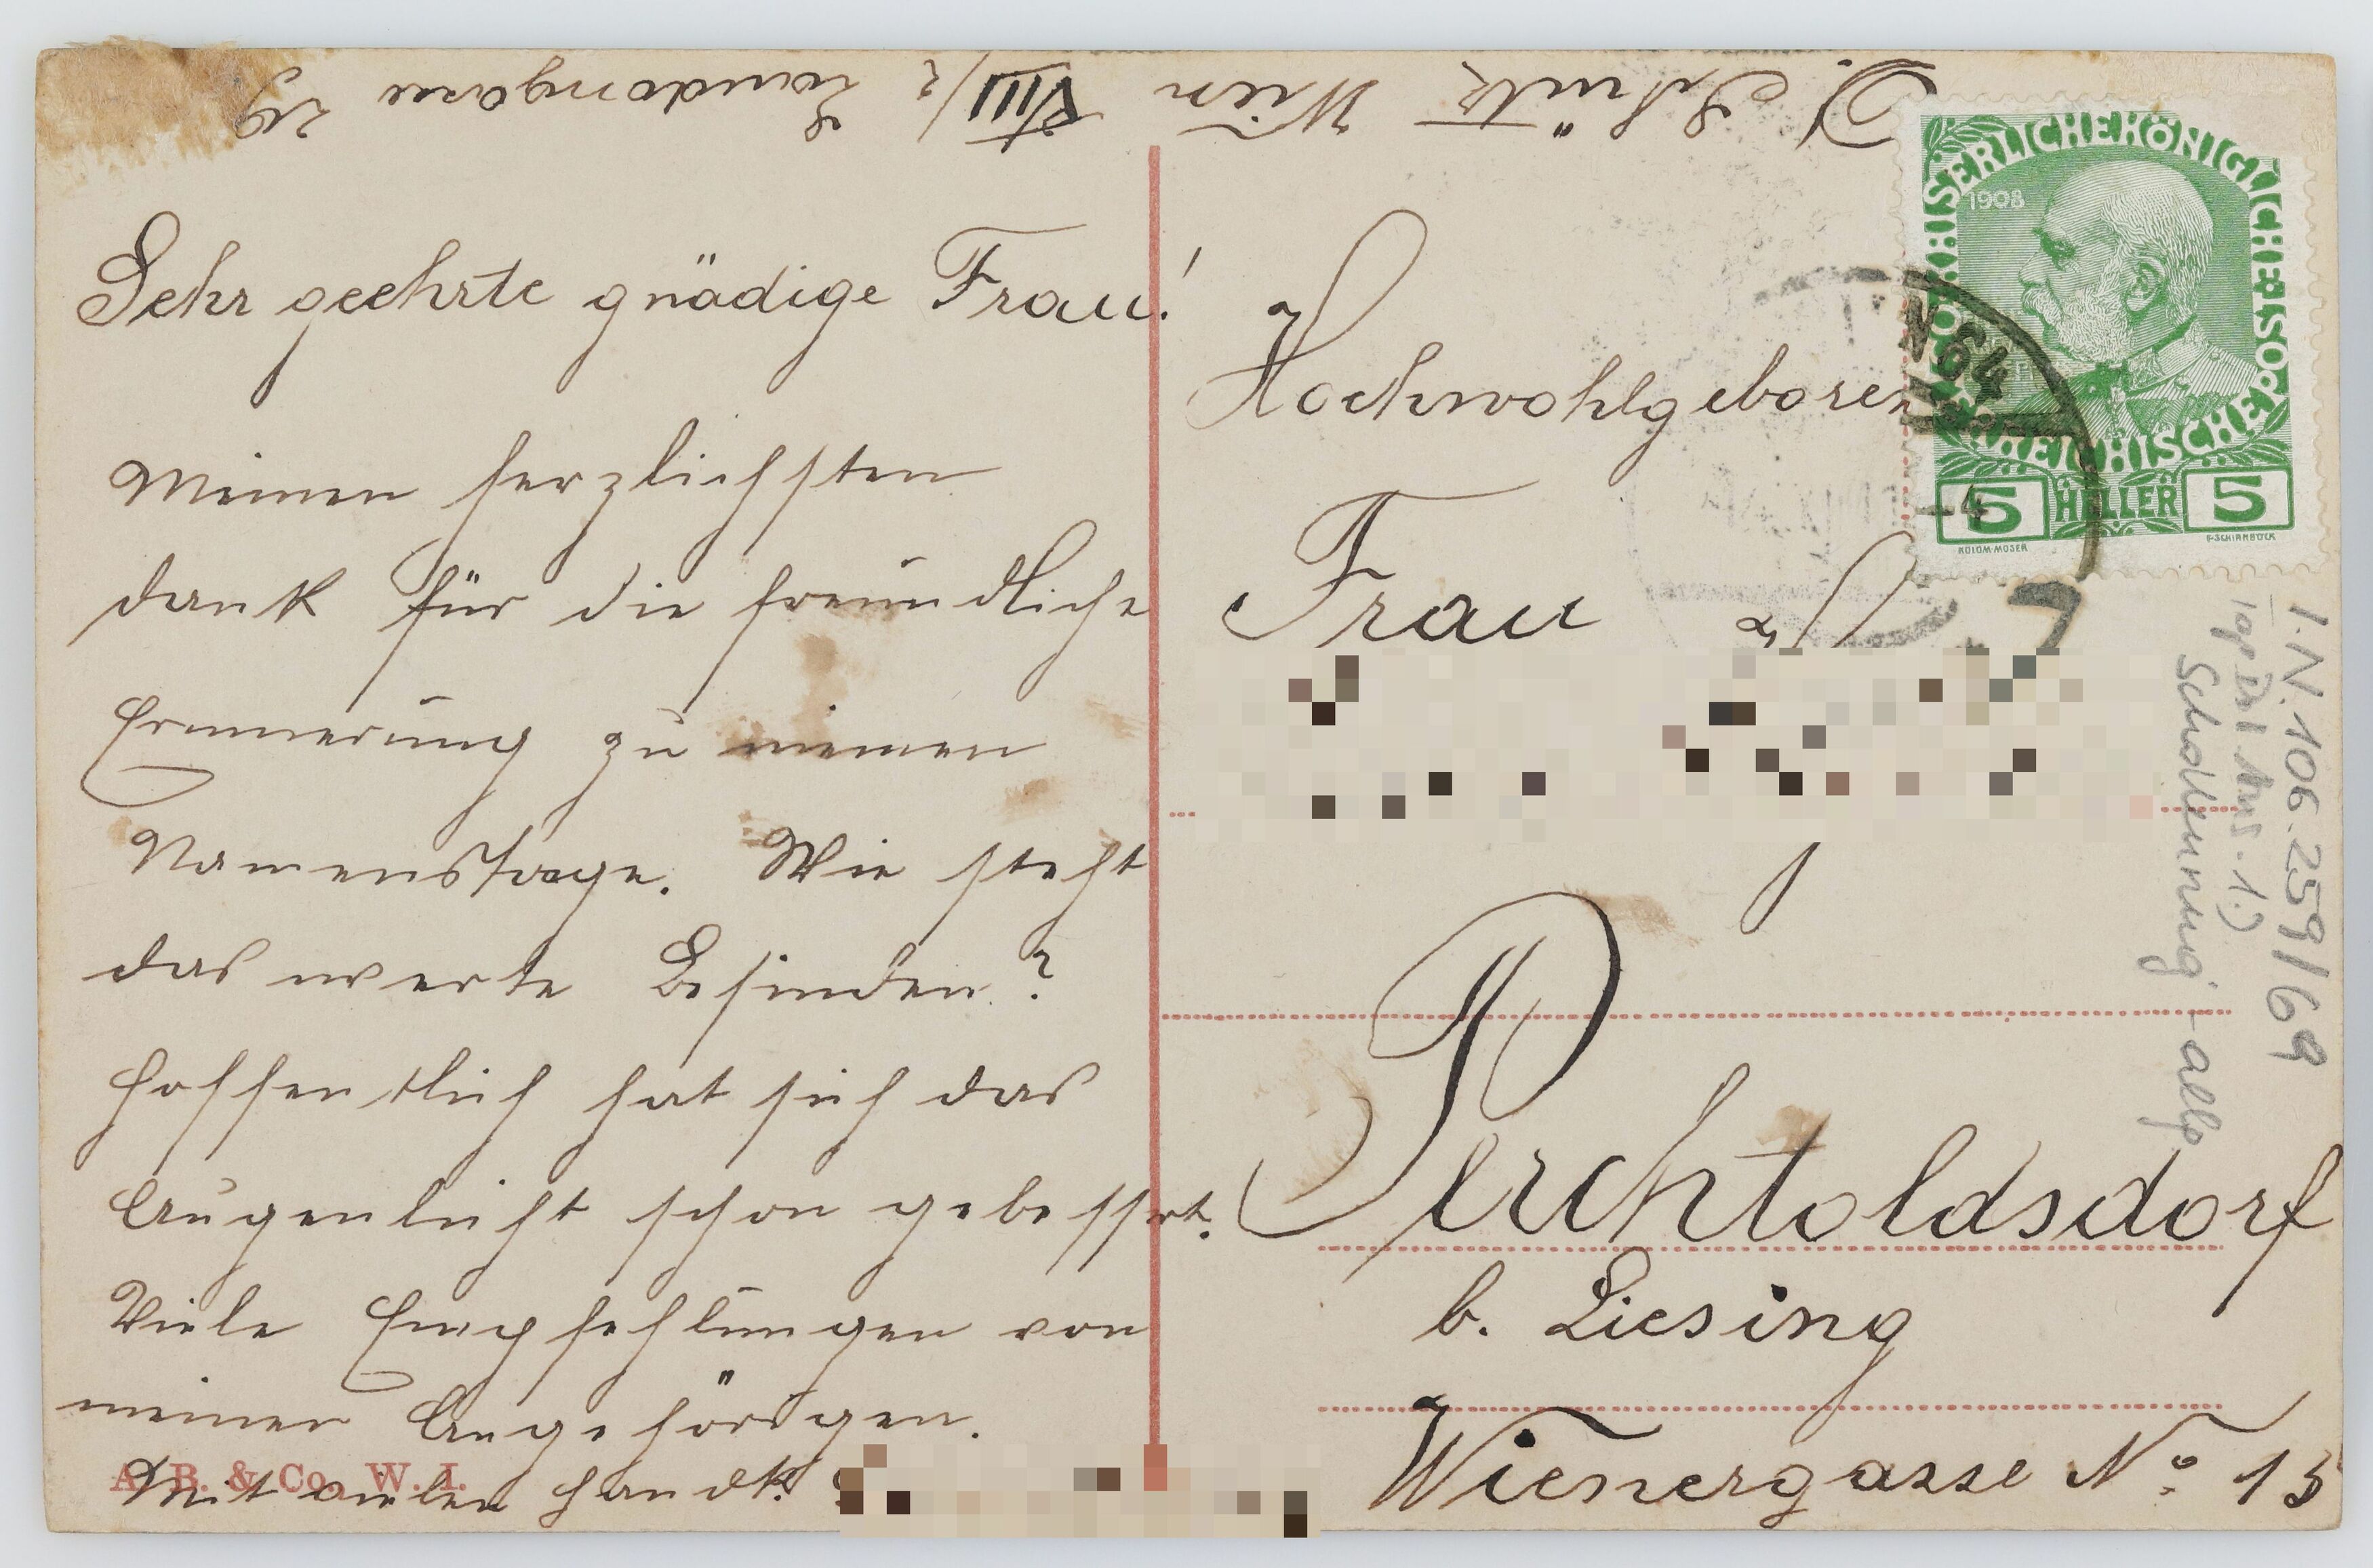 D. Schütz Wien VIII/2 Laudongasse 29
Sehr geehrte gnädige Frau!
Meinen herzlichsten
Dank für die freundliche
Erinnerung zu meinem
Namenstage. Wie steht
das werte Befinden?
Hoffentlich hat sich das
Augenlicht schon gebessert.
Viele Empfehlungen von
meinen Angehörigen.
Mit vielen Handk.
A. B. & Co. W. I.
Hochwohlgeboren
Frau
Perchtoldsdorf
b. Liesing
Wienergasse No. 15
KAISERLICHE KÖNIGLICHE POST
ÖSTERREICHISCHE
1908
5 HELLER 5
KOLOM. MOSER
F. SCHIRNBÖCK
N 64
I.N. 106.259/69